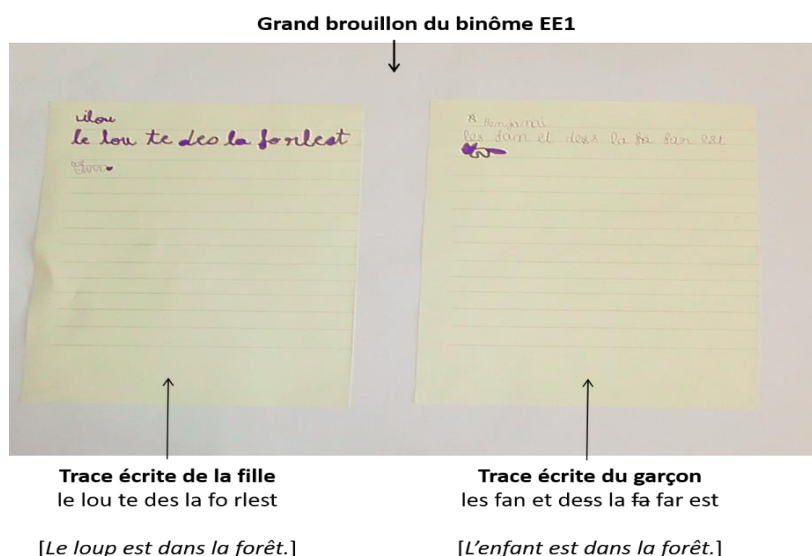 Grand brouillon du binôme EE1
Lilou
le lou te des la forlest
Benjamai
les fan et dess la fa fan est
Trace écrite de la fille
le lou te des la fo rlest
[Le loup est dans la forêt.]
Trace écrite du garçon
les fan et dess la fa far est
[L'enfant est dans la forêt.]